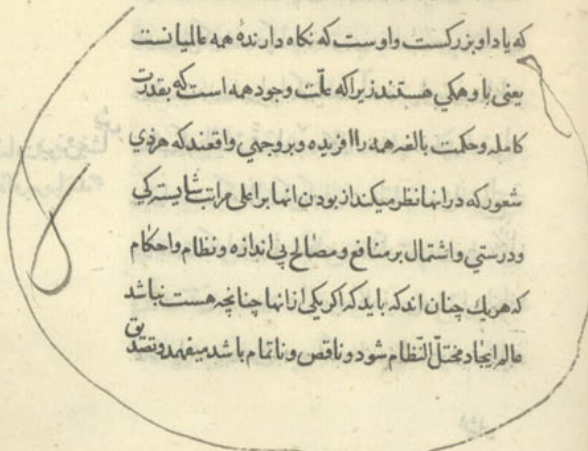 که یاد او بزرکست و اوست که نکاه دارندهٔ همه عالمیانست
یعنی باو همکي هستند زیرا که علّت وجود همه است که بقدرت
کامله وحکمت بالغه همه را افریده و بر وجهي واقعند که هر ذي
شعور که در انها نظر میکند از بودن انها بر اعلی مراتب شایستکي
ودرستي واشتمال بر منافع ومصالح بي اندازه ونظام واحکام
که هر یك چنان اند که باید که اکر یکي از انها چنانچه هست نباشد
عالم ایجاد مختلّ النّظام شود وناقص وناتمام باشد میفهمد وتصدیق